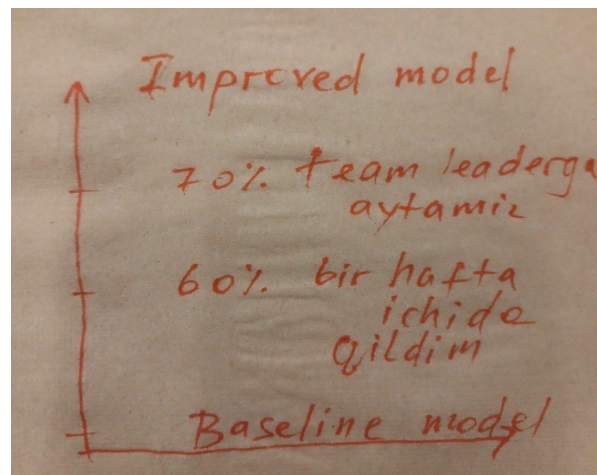 Improved model
70% team leaderga
aytamiz
60% bir hafta
ichida
qildim
Baseline model